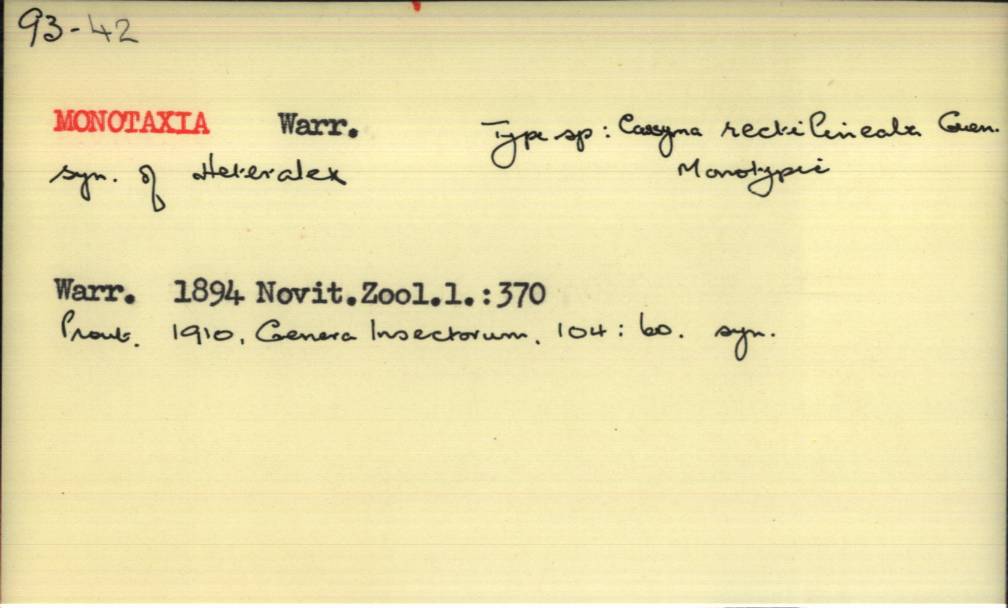 93-42
MONOTAXIA Warr. Type sp: rectilineata Guen.
syn. of Heteralex Monotypic
Warr. 1894 Novit.Zool.1.:370
Prout. 1910, Genera Insectorum, 104: 60. syn.